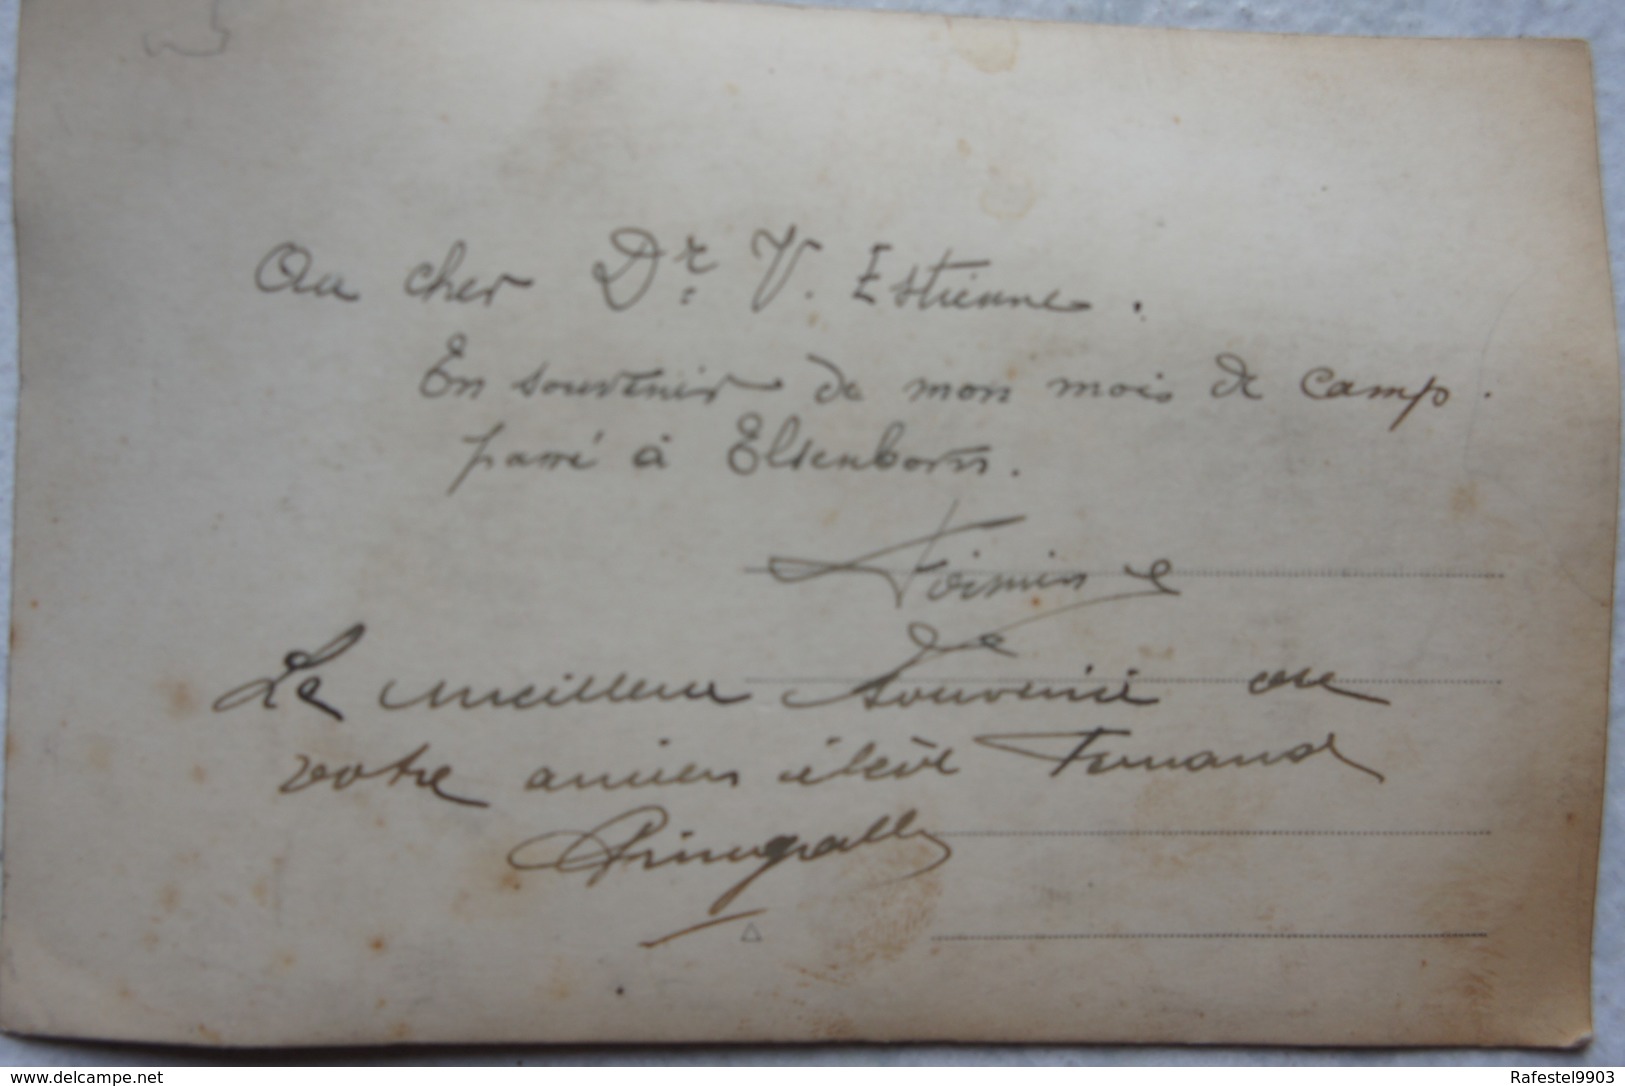 Au cher Dr. V. Estienne.
En souvenir de mon mois de camp.
passé à Elsenborn.
Le meilleur souvenir de
votre ancien élève Fernand
www.delcampe.net
Rafestel9903